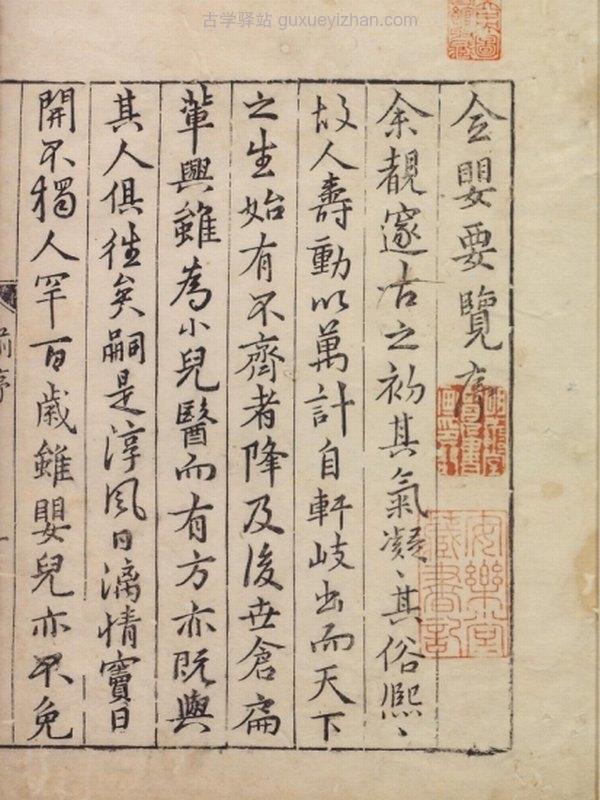 古学驿站 guxueyizhan.com
全嬰要覽序
余覩邃古之初其氣凝〻其俗熙〻
故人壽動以萬計自軒岐出而天下
之生始有不齊者降及後世倉扁
輩興雖為小兒醫而有方亦既與
其人俱徃矣嗣是淳風日漓情竇日
開不獨人罕百歲雖嬰兒亦不免
前序
一
明善堂覽書畫印記
安樂堂藏書記